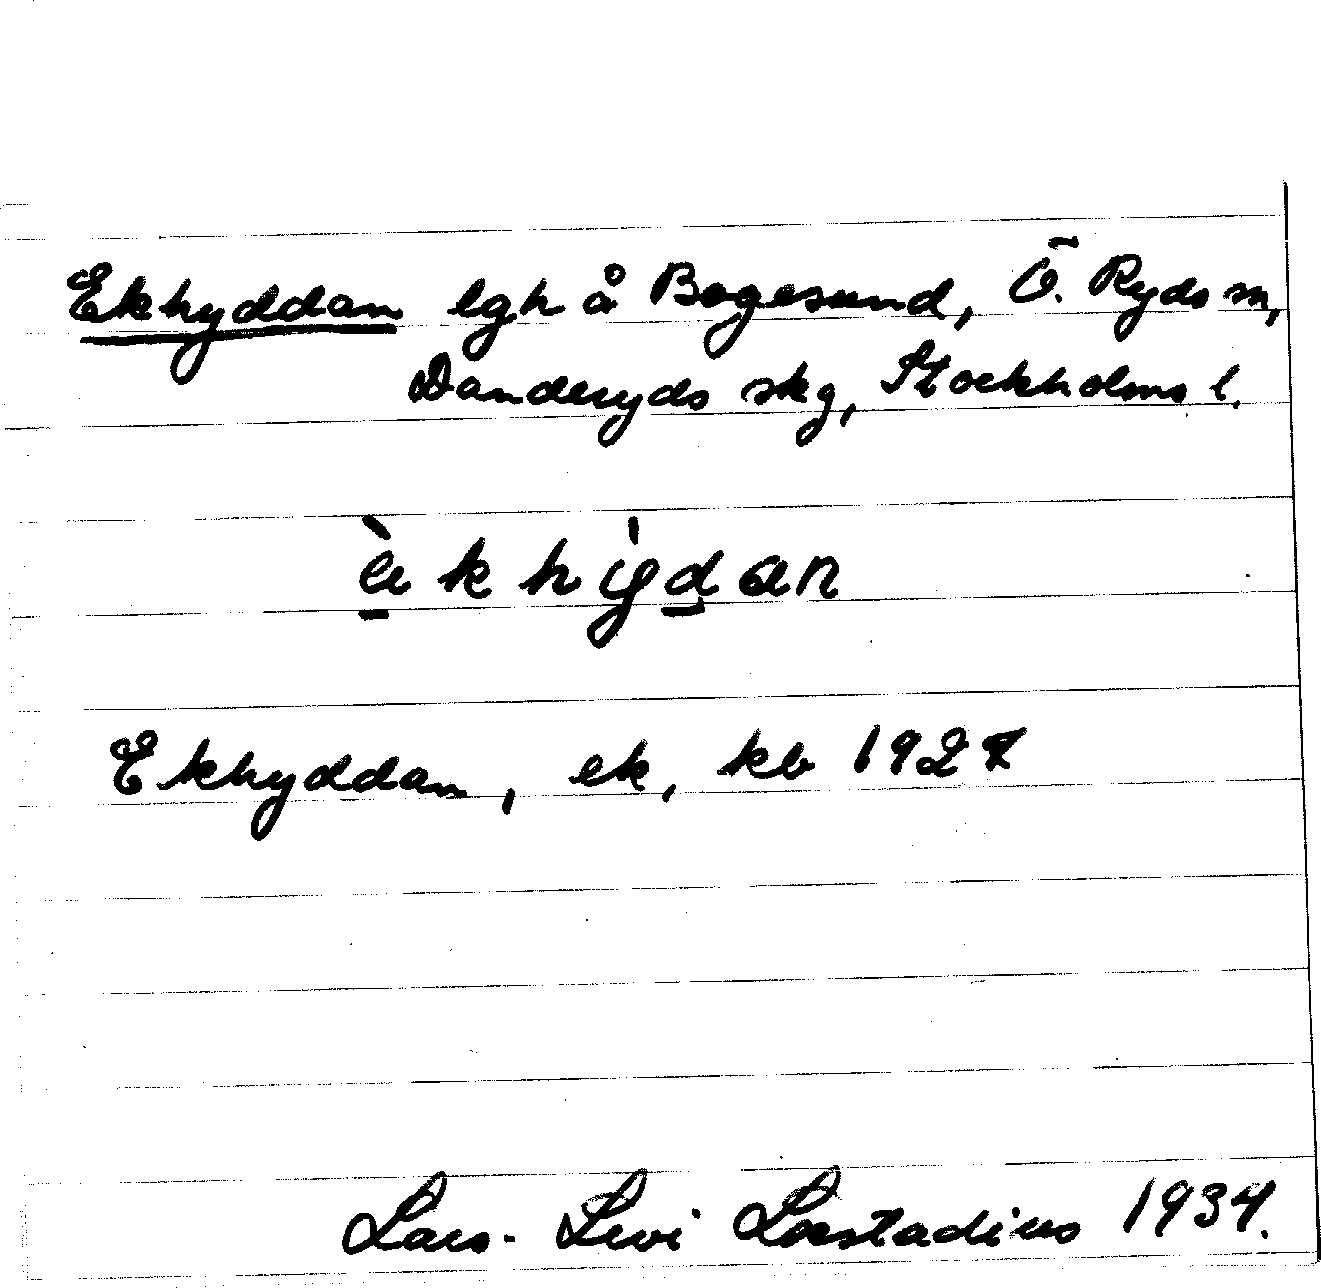 Ekhyddan lgh å Bogesund, Ö. Ryds sn,
Danderyds skg, Stockholms l.
è̱khy̍ḏan
Ekhyddan, ek, kb 1927
Lars-Levi Læstadius 1934.